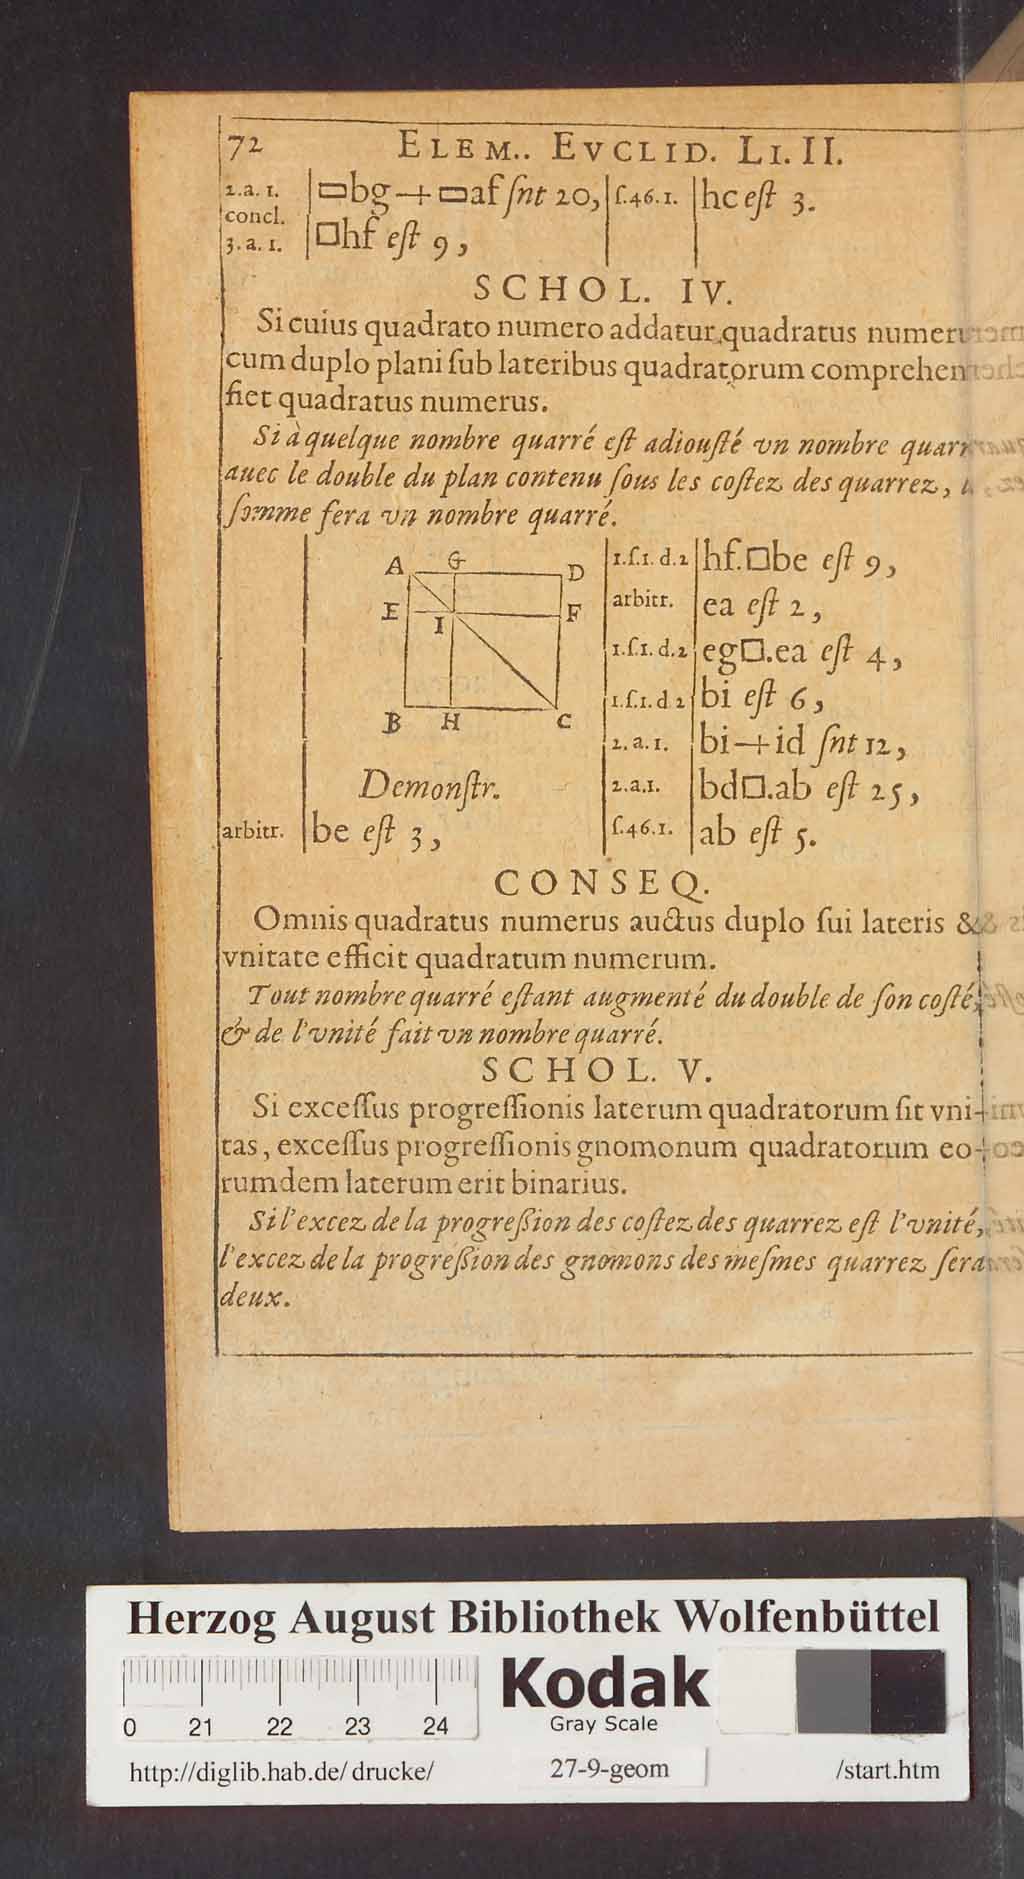 72 ELEM.. EVCLID. LI. II.
2.a.1. ▭bg+▭af ſnt 20,
concl.
3.a.1. □hf eſt 9,
ſ.46.1. hc eſt 3.
SCHOL. IV.
Si cuius quadrato numero addatur quadratus
cum duplo plani ſub lateribus quadratorum
fiet quadratus numerus.
Si à quelque nombre quarré eſt adiouſté vn nombre
auec le double du plan contenu ſous les coſtez des quarrez,
ſomme ſera vn nombre quarré.
A G D
E I F
B H C
Demonſtr.
arbitr. be eſt 3,
1.ſ.1.d.2 hf.□be eſt 9,
arbitr. ea eſt 2,
1.ſ.1.d.2 eg□.ea eſt 4,
1.ſ.1.d 2 bi eſt 6,
2.a.1. bi+id ſnt 12,
2.a.1. bd□.ab eſt 25,
ſ.46.1. ab eſt 5.
CONSEQ.
Omnis quadratus numerus auctus duplo ſui lateris &
vnitate efficit quadratum numerum.
Tout nombre quarré eſtant augmenté du double de ſon coſté,
& de l'vnité fait vn nombre quarré.
SCHOL. V.
Si exceſſus progreſſionis laterum quadratorum ſit vni-
tas, exceſſus progreſſionis gnomonum quadratorum eo-
rumdem laterum erit binarius.
Si l'excez de la progreßion des coſtez des quarrez eſt l'vnité,
l'excez de la progreßion des gnomons des meſmes quarrez ſera
deux.
Herzog August Bibliothek Wolfenbüttel
0 21 22 23 24
Kodak
Gray Scale
http://diglib.hab.de/drucke/ 27-9-geom /start.htm